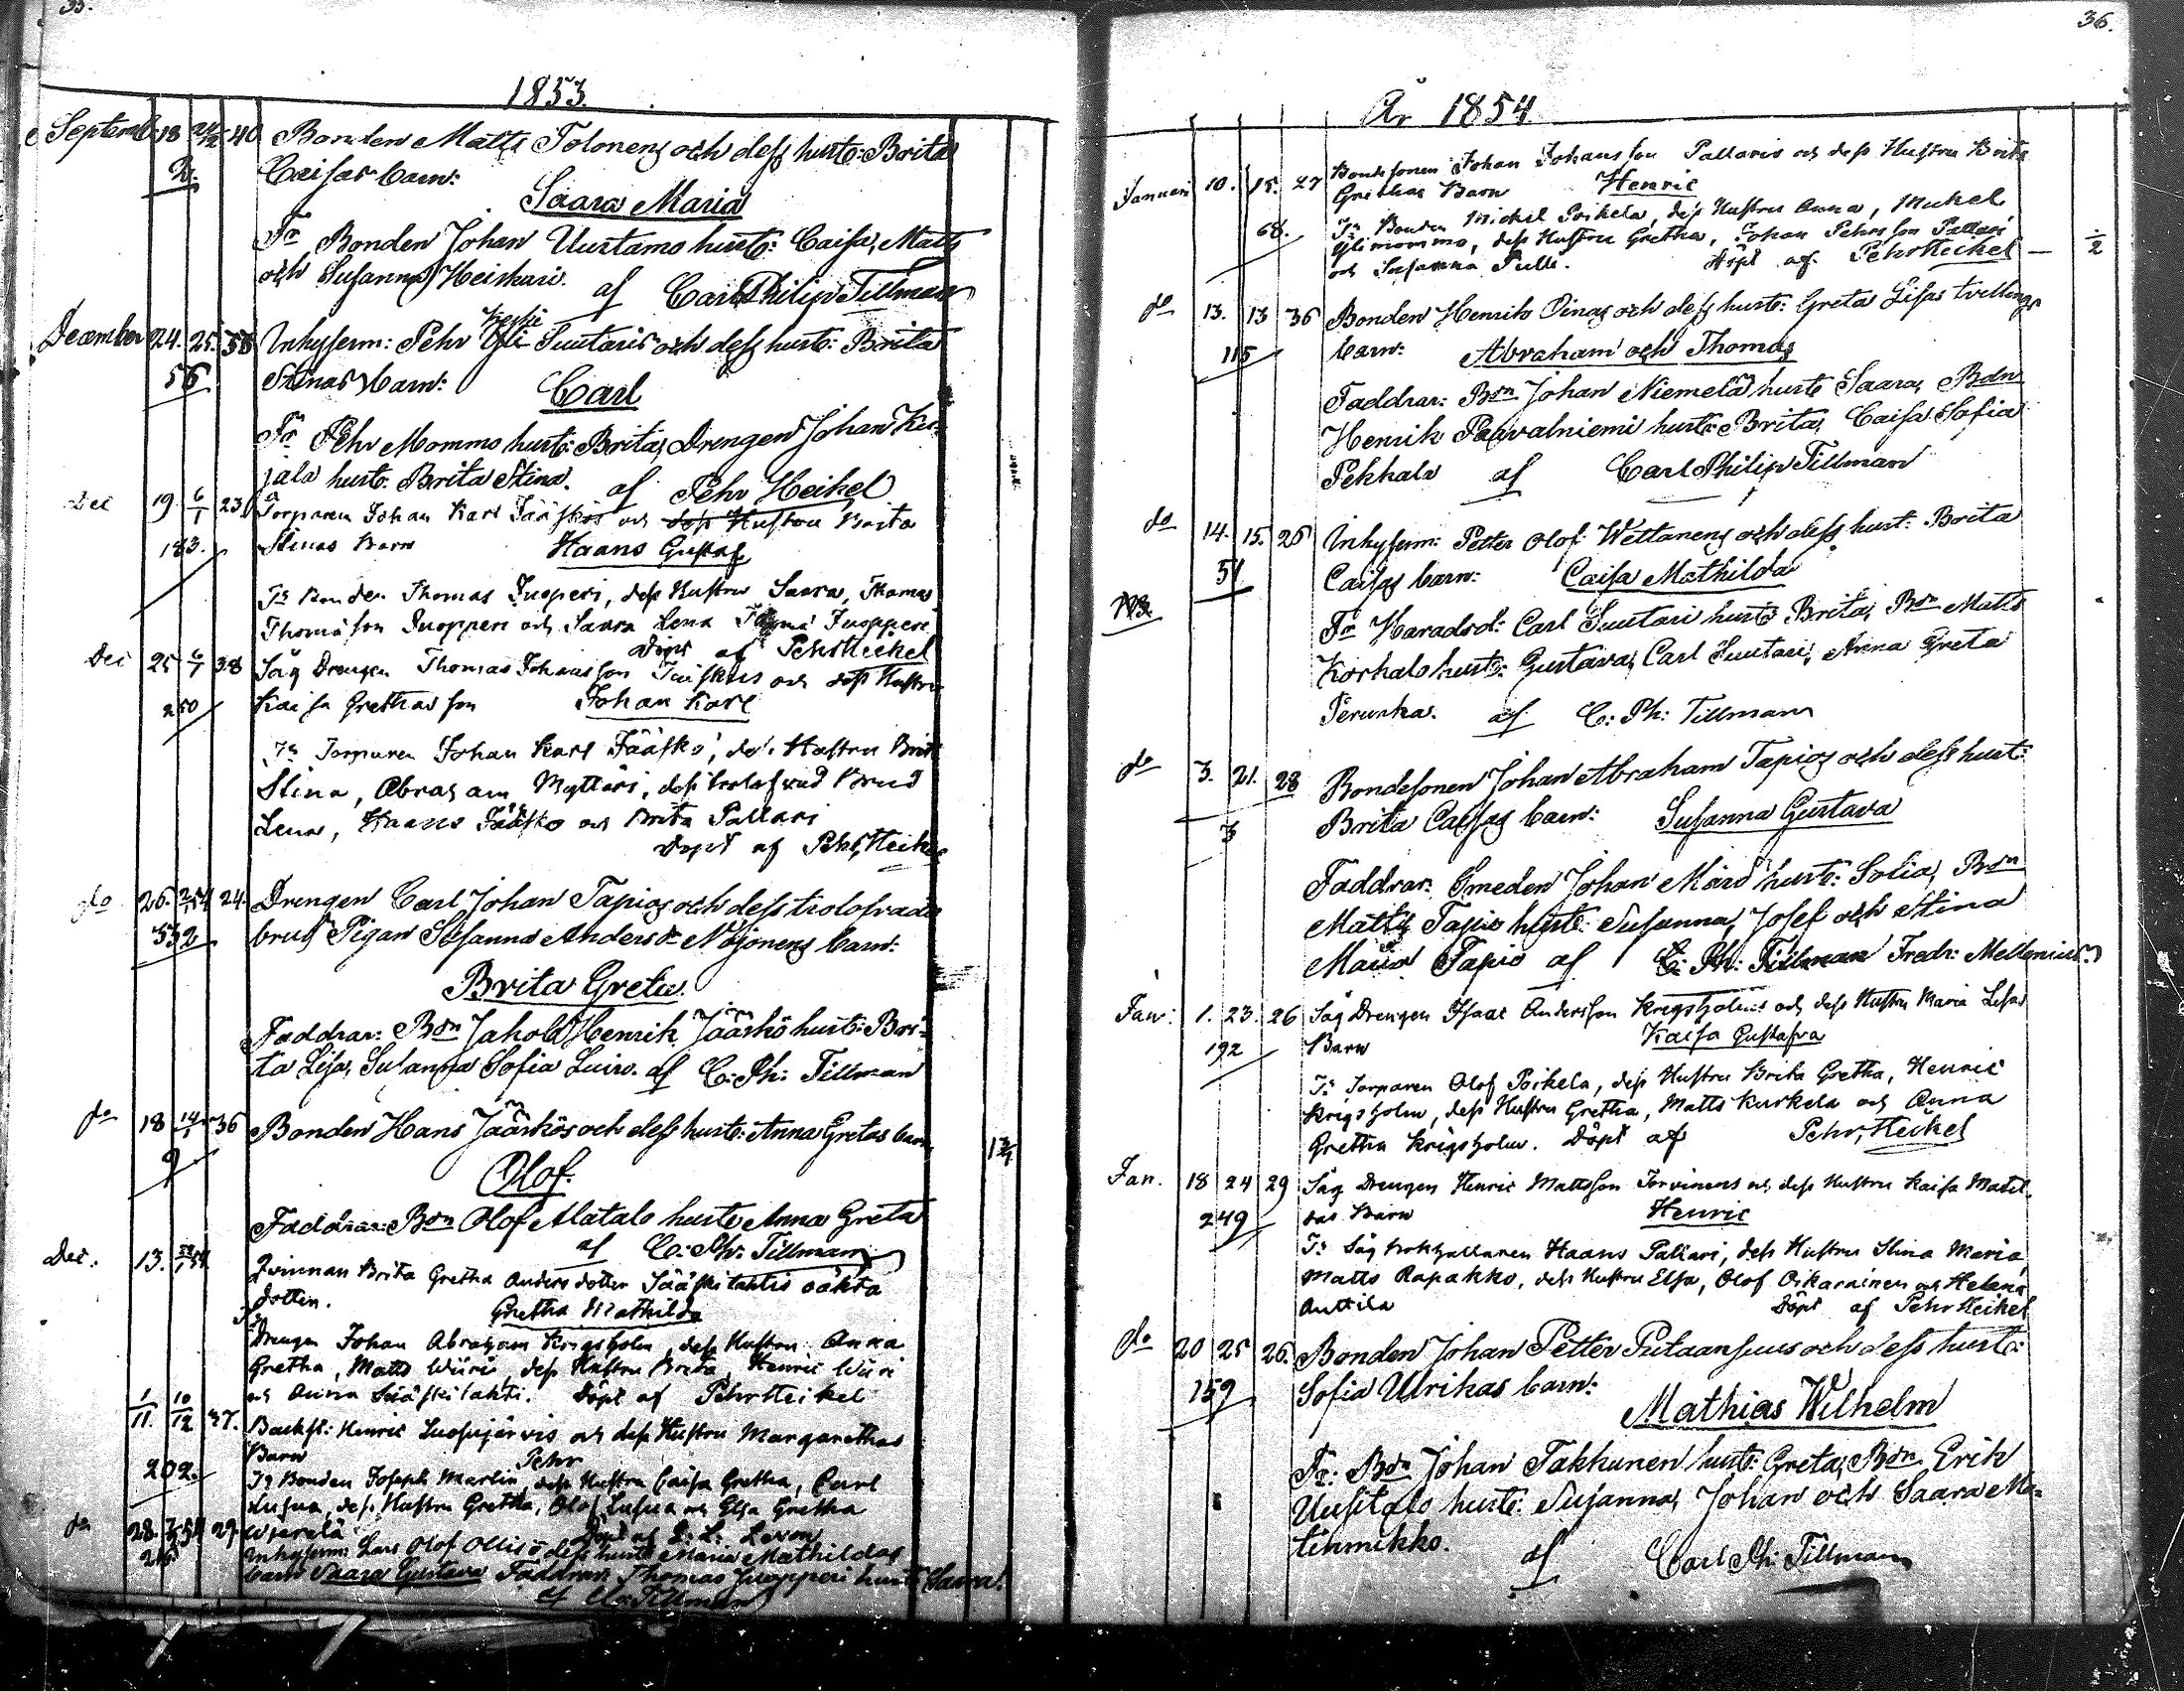 35.
1853.
September 18 24/12 40 Bonden Matts Tolonens och dess hustr: Brita
2. Caisas barn:
Saara Maria
Fr Bonden Johan Uustamo hustr: Caisa, Matts
och Susanna Heiskari. af Carl Philip Tillman
December 24. 25. 38 Inhyserm: Pehr Suutaris och dess hustr: Brita
56 Stinas barn: Carl
Fr Pehr Mommo hustr: Brita, Drengen Johan Ker-
jala hustr: Brita Stina. af Pehr Heikel
Dec 19. 6/1 23. Torparen Johan Karl Jääskös och dess Hustru Brita
183. Stinas Barn Haans Gustaf
Fr Bonden Thomas Juoperi, dess Hustru Saara, Thomas
Thomasson Juopperi och Saara Lena Juopperi
Döpt af Pehr Heikel
Dec 25 6/1 38 Såg Drengen Thomas Johansson och dess Hustru
250 Kaisa Grethas son Johan Karl
Fr Torparen Johan Karl Jääskö, dess Hustru Brita
Stina, Abraham Myttäri, dess trolofvad Brud
Lena, Haans Jääskö och Brita Pallari
Döpt af Pehr Heikel
do 26. 2/1 54 24. Drengen Carl Johan Tapios och dess trolofvade
552 brud Pigan Susanna Anders dr Nojonens barn:
Brita Greta
Faddrar: Bdn Jakob Henrik Jääskö hustr: Bri-
ta Lisa, Susanna Sofia Luiro. af C: Ph: Tillman
do 18 14/1 36 Bonden Hans Jääskös och dess hustr: Anna Gretas barn
9 Olof.
Faddrar: Bdn Olof Alatalo hustr: Anna Greta
af C: Ph: Tillman
Dec. 13. Qvinnan Brita Gretha Anders dotter Sääskilahtis oäkta
dotter. Gretha Mathilda
Fr Drengen Johan Abraham Krigsholm, dess Hustru Anna
Gretha, Matts Wiiri, dess Hustru Brita Henric Wiiri
och Anna Sääskilahti. Döpt af Pehr Heikel
1/11. 10/12 37. Backst: Henric Luosujärvis och dess Hustru Margarethas
Barn Pehr
202. Fr Bonden Joseph Martin, dess Hustru Caisa Gretha, Carl
Lusua, dess Hustru Gretha, Olof Lusua och Elsa Gretha
Döpt af
do 28. 29. Inhyserm: Lars Olof Ollis dess hustr: Maria Mathildas
barn Saara Gustava Faddrar: Thomas Juopperi hustr: Saara.
af C: Tillman
36.
År 1854
Januari 10. 15. 27 Bondesonen Johan Johansson Pallaris och dess Hustru Brita
Grethas Barn Henric
68. Fr Bonden Mickel Poikela, dess Hustru Anna, Mickel
Ylimommo, dess Hustru Gretha, Johan Pehrsson Pallari
och Susanna Pulli. Döpt af Pehr Heikel
do 13. 13 36 Bonden Henrik Oinas och dess hustr: Greta Lisas tvillings
115 barn: Abraham och Thomas
Faddrar: Bdn Johan Niemelä hustr Saara, Bdn
Henrik Paavalniemi hustr: Brita, Caisa Sofia
Pekkala af Carl Philip Tillman
do 14. 15. 26 Inhyserm: Petter Olof Wettanens och dess hust: Brita
51 Caisas barn: Caisa Mathilda
Fr Haradsd: Carl Suutari hustr Brita, Bdn Matts
Korkalo hustr: Gustava, Carl Suutari, Anna Greta
Perunka. af C: Ph: Tillman
do 3. 21. 28 Bondesonen Johan Abraham Tapios och dess hust:
3 Brita Caisas barn: Susanna Gustava
Faddrar: Smeden Johan Mård hustr: Sofia, Bdn
Matts Tapio hustr: Susanna, Josef och Stina
Maria Tapio af C: Ph: Tillman Fredr: Mellenius.
Jan: 1. 23. 26 Såg Drengen Isaac Andersson Krigsholms och dess Hustru Maria Lisas
192 Barn Kaisa Gustafva
Fr Torparen Olof Poikela, dess Hustru Brita Gretha, Henric
Krigsholm, dess Hustru Gretha, Matts Kurkela och Anna
Gretha Krigsholm. Döpt af Pehr Heikel
Jan. 18 24 29 Såg Drengen Henric Mattsson Torvinens och dess Hustru Kaisa Matil-
249 das Barn Henric
Fr Såg bokhållaren Haans Pallari, dess Hustru Stina Maria,
Matts Rapakko, dess Hustru Elsa, Olof Oikarainen och Helena
Anttila Döpt af Pehr Heikel
do 20 25 26. Bonden Johan Petter Putaansuus och dess hustr:
159 Sofia Ulrikas barn:
Mathias Wilhelm
Fr: Bdn Johan Takkunen hustr: Greta, Bdn Erik
Uusitalo hustr: Susanna, Johan och Saara Ma-
tinmikko. af Carl Ph: Tillman